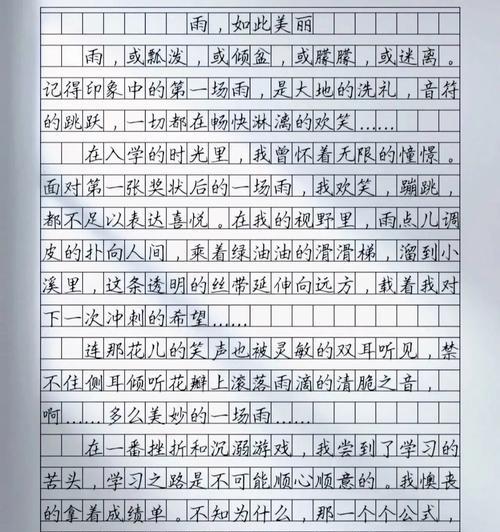 雨,如此美丽
雨,或瓢泼,或倾盆,或朦朦,或迷离。
记得印象中的第一场雨,是大地的洗礼,音符
的跳跃,一切都在畅快淋漓的欢笑……
在入学的时光里,我曾怀着无限的憧憬。
面对第一张奖状后的一场雨,我欢笑,蹦跳,
都不足以表达喜悦。在我的视野里,雨点儿调
皮的扑向人间,乘着绿油油的滑滑梯,溜到小
溪里,这条透明的丝带延伸向远方,载着我对
下一次冲刺的希望……
连那花儿的笑声也被灵敏的双耳听见,禁
不住侧耳倾听花瓣上滚落雨滴的清脆之音,
啊……多么美妙的一场雨……
在一番挫折和沉溺游戏,我尝到了学习的
苦头,学习之路是不可能顺心顺意的。我懊丧
的拿着成绩单。不知为什么,那一个个公式,